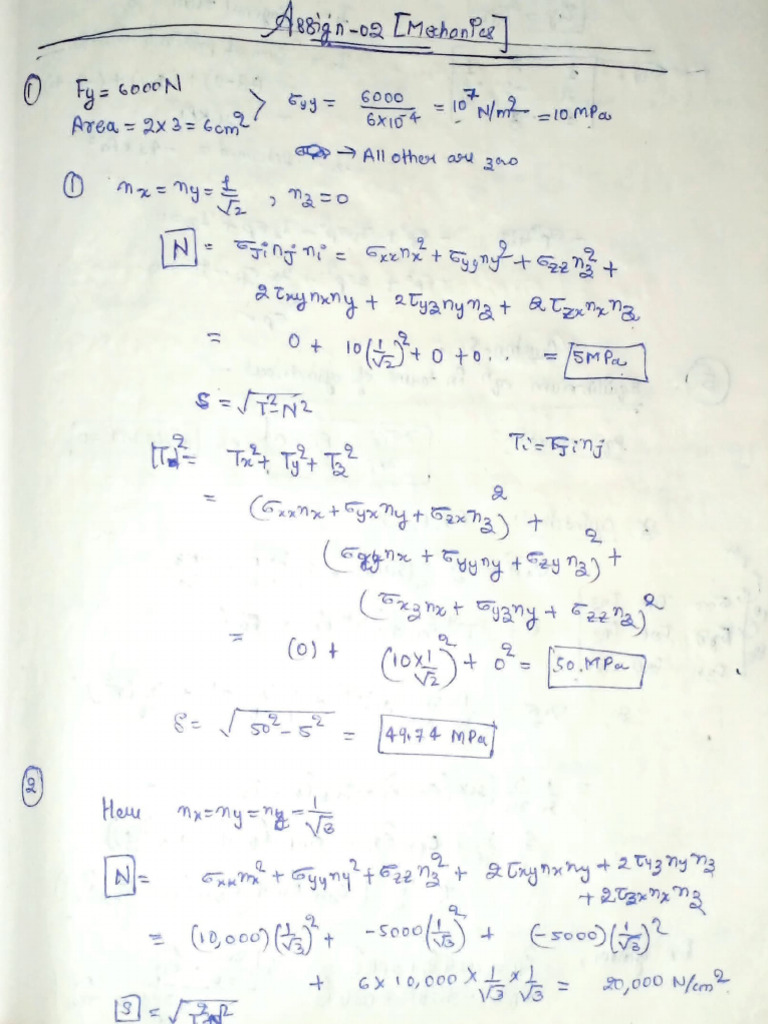 Assign-02 [Mechanics]
① Fy = 6000N
Area = 2×3 = 6cm² > σyy = 6000 / 6×10⁻⁴ = 10⁷ N/m² = 10 MPa
→ All other are zero
① nx = ny = 1/√2 , nz = 0
N = σji nj ni = σxx nx² + σyy ny² + σzz nz² +
2τxy nx ny + 2τyz ny nz + 2τzx nx nz
= 0 + 10(1/√2)² + 0 + 0.. = 5MPa
S = √T²-N²
|T|² = Tx² + Ty² + Tz² Ti = σji nj
= (σxx nx + σyx ny + σzx nz)² +
(σxy nx + σyy ny + σzy nz)² +
(σxz nx + σyz ny + σzz nz)²
= (0) + (10×1/√2)² + 0² = 50.MPa
S = √50²-5² = 49.74 MPa
② Here nx = ny = ny = 1/√3
N = σxx nx² + σyy ny² + σzz nz² + 2τxy nx ny + 2τyz ny nz
+ 2τzx nx nz
= (10,000)(1/√3)² + -5000(1/√3)² + (-5000)(1/√3)²
+ 6×10,000×1/√3×1/√3 = 20,000 N/cm²
S = √T²-N²